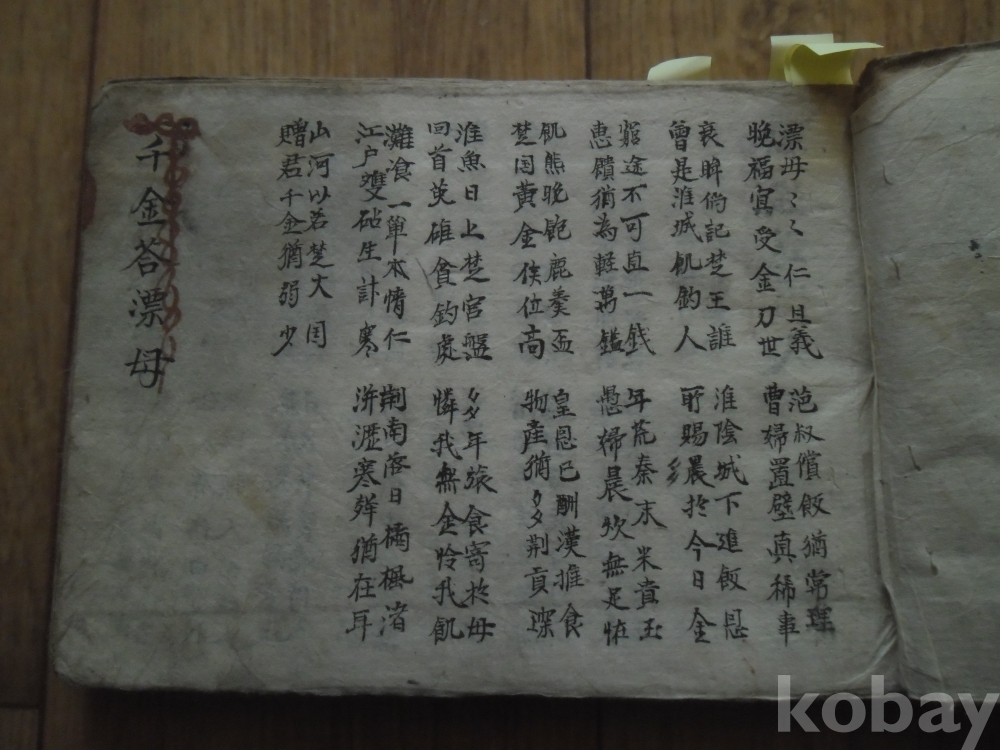 漂母〻〻仁且義
晩福宜受金刀世
范叔償飯猶常理
曹婦置壁真稀事
衰眸倘記楚王誰
曾是淮城飢釣人
淮陰城下進飯恩
所賜晨於今日金
窮途不可直一銭
惠饋猶為軽萬鎰
年荒秦末米貴玉
愚婦晨炊無足恠
飢熊晩飽鹿羹盃
楚国黄金侯位高
皇恩已酬漢推食
物産猶多荆貢琛
淮魚日上楚宮盤
回首英雄貧釣處
多年張食寄於母
憐我無金怜我飢
灘飡一簞本情仁
江户雙砧生計寒
荆南落日橘楓渚
洴澼寒聲猶在耳
山河以若楚大国
贈君千金猶弱少
千金答漂母
kobay